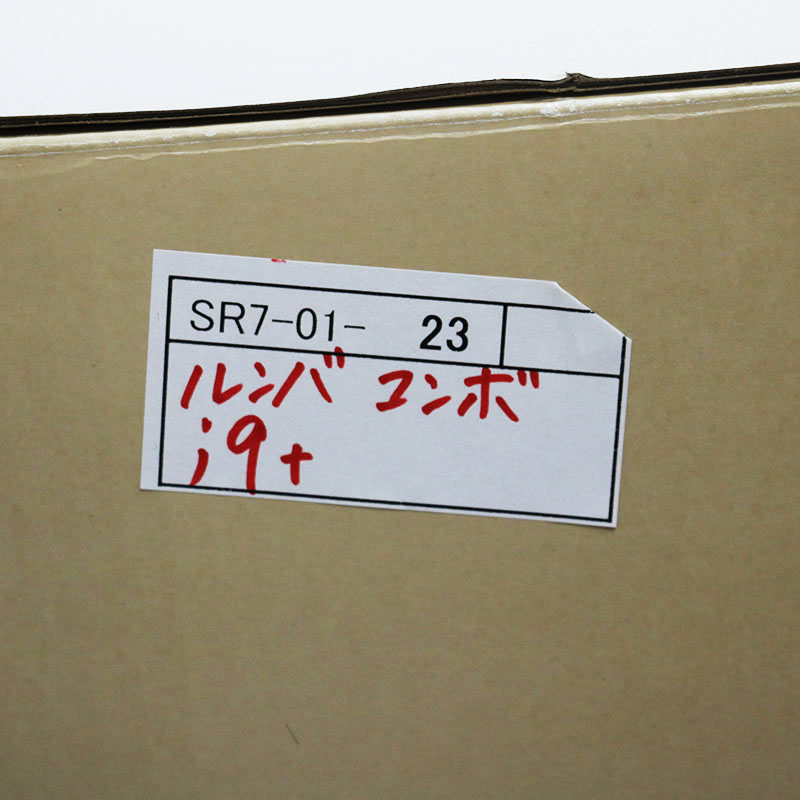 SR7-01- 23
ルンバ コンボ
j9+